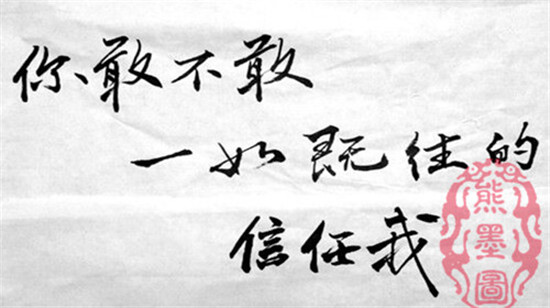 你敢不敢
一如既往的
信任我
熊墨圖